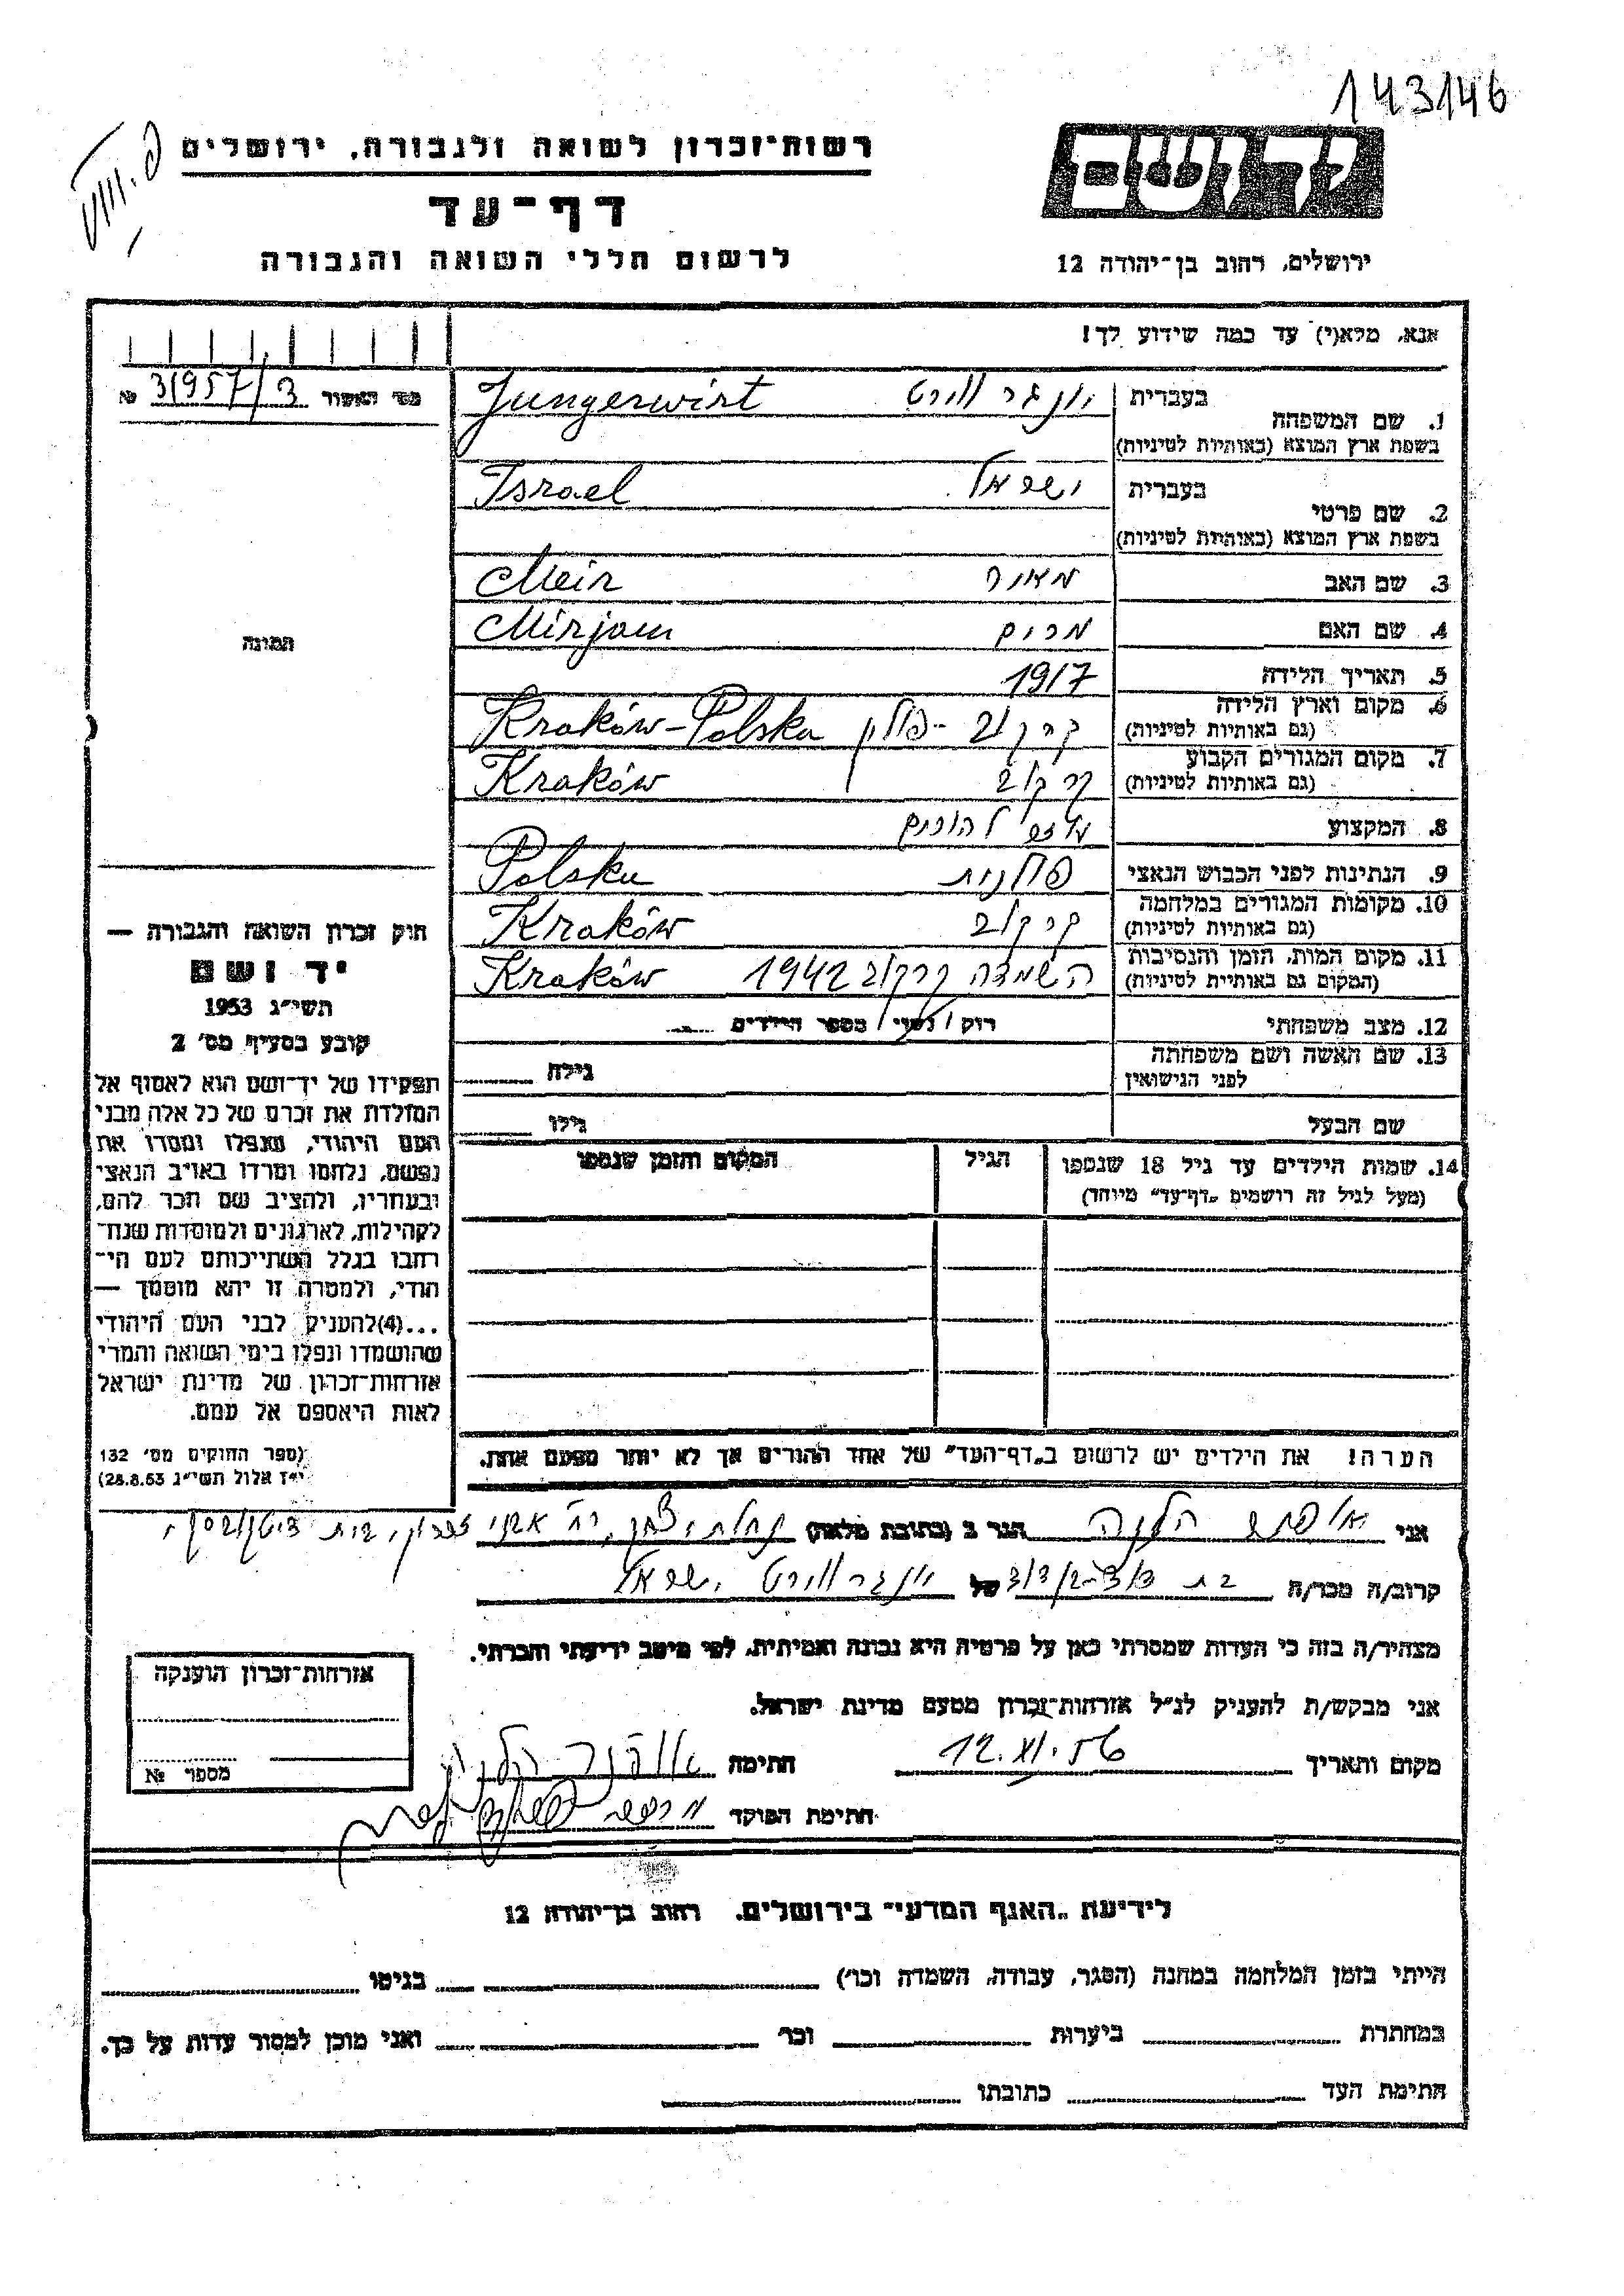 143146
רשות-זכרון לשואה ולגבורה, ירושלים
יד ושם
דף-עד
לרשום חללי השואה והגבורה
ירושלים, רחוב בן-יהודה 12
אנא, מלא(י) עד כמה שידוע לך!
מס' האשור 31957/3 №
1. שם המשפחה בעברית יונגרווירט Jungerwirt
בשפת ארץ המוצא (באותיות לטיניות)
2. שם פרטי בעברית ישראל Israel
בשפת ארץ המוצא (באותיות לטיניות)
3. שם האב מאיר Meir
4. שם האם מרים Mirjam
5. תאריך הלידה 1917
6. מקום וארץ הלידה קרקוב - פולין Kraków-Polska
(גם באותיות לטיניות)
7. מקום המגורים הקבוע קרקוב Kraków
(גם באותיות לטיניות)
8. המקצוע
9. הנתינות לפני הכבוש הנאצי פולנית Polska
10. מקומות המגורים במלחמה קרקוב Kraków
(גם באותיות לטיניות)
11. מקום המות, הזמן והנסיבות השמדה קרקוב 1942 Kraków
(המקום גם באותיות לטיניות)
12. מצב משפחתי רוק / נשוי / מספר הילדים
13. שם האשה ושם משפחתה
לפני הנישואין גילה
שם הבעל גילו
14. שמות הילדים עד גיל 18 שנספו הגיל המקום והזמן שנספו
(מעל לגיל זה רושמים „דף-עד" מיוחד)
הערה! את הילדים יש לרשום ב„דף-העד" של אחד ההורים אך לא יותר מפעם אחת.
תמונה
חוק זכרון השואה והגבורה —
יד ושם
תשי"ג 1953
קובע בסעיף מס' 2
תפקידו של יד-ושם הוא לאסוף אל
המולדת את זכרם של כל אלה מבני
העם היהודי, שנפלו ומסרו את
נפשם, נלחמו ומרדו באויב הנאצי
ובעוזריו, ולהציב שם וזכר להם,
לקהילות, לארגונים ולמוסדות שנח-
רבו בגלל השתייכותם לעם הי-
הודי, ולמטרה זו יהא מוסמך —
...(4)להעניק לבני העם היהודי
שהושמדו ונפלו בימי השואה והמרי
אזרחות-זכרון של מדינת ישראל
לאות היאספם אל עמם.
(ספר החוקים מס' 132
י"ז אלול תשי"ג 28.8.53)
אני הלנה הגר ב (כתובת מלאה) נחלת יצחק,
קרוב/ה מכר/ה בת דוד של יונגרווירט ישראל
מצהיר/ה בזה כי העדות שמסרתי כאן על פרטיה היא נכונה ואמיתית, לפי מיטב ידיעתי והכרתי.
אני מבקש/ת להעניק לנ"ל אזרחות-זכרון מטעם מדינת ישראל.
מקום ותאריך 12.XI.56 חתימה
חתימת הפוקד
אזרחות-זכרון הוענקה
מספר №
לידיעת „האגף המדעי" בירושלים. רחוב בן-יהודה 12
הייתי בזמן המלחמה במחנה (הסגר, עבודה, השמדה וכו') בגיטו
במחתרת ביערות וכו' ואני מוכן למסור עדות על כך.
חתימת העד כתובתו